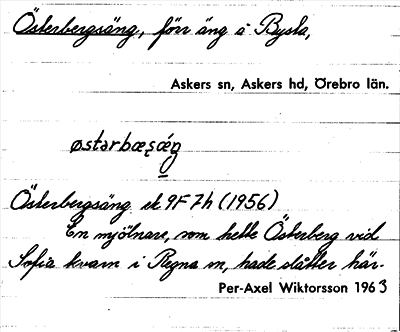 Österbergsäng, förr äng å Bysta,
Askers sn, Askers hd, Örebro län.
østarbæʂǽŋ
Österbergsäng ek 9F7h (1956)
En mjölnare, som hette Österberg vid
Sofia kvarn i Regna sn, hade slåtter här.
Per-Axel Wiktorsson 1963